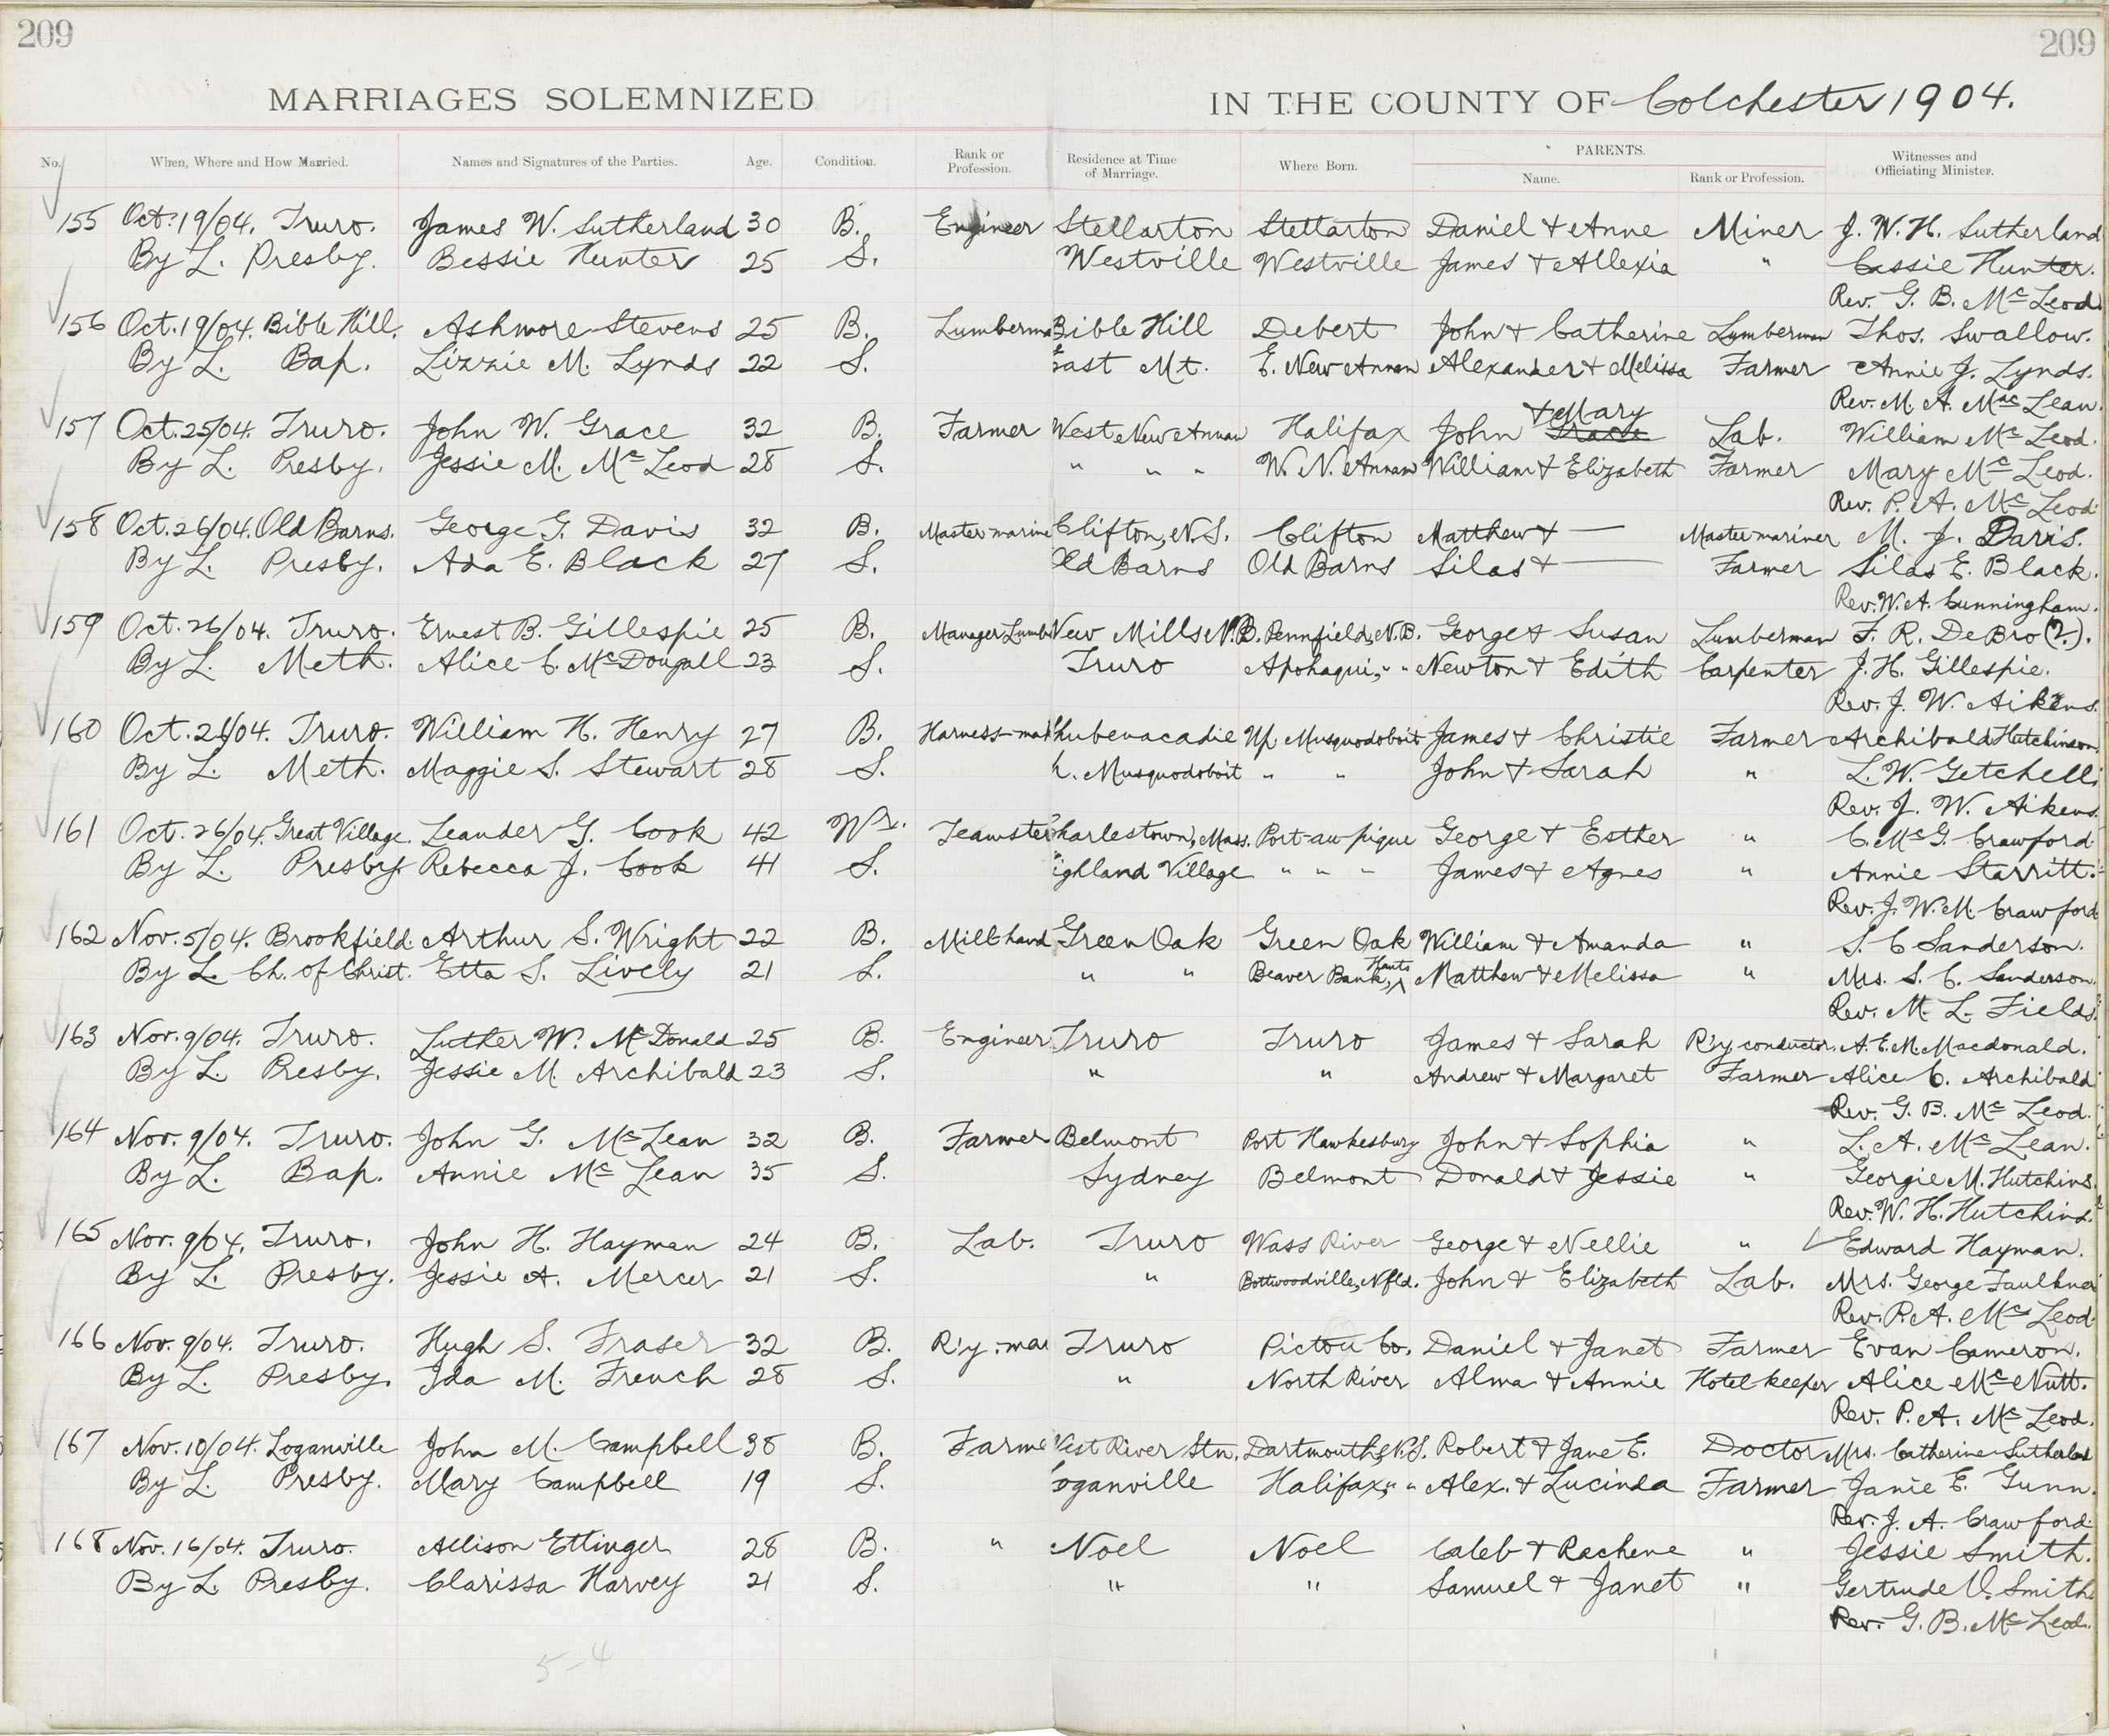 209 209
MARRIAGES SOLEMNIZED IN THE COUNTY OF Colchester 1904.
No. When, Where and How Married. Names and Signatures of the Parties. Age. Condition. Rank or Profession. Residence at Time of Marriage. Where Born. PARENTS. Name. Rank or Profession. Witnesses and Officiating Minister.
155 Oct. 19/04. Truro. James W. Sutherland 30 B. Engineer Stellarton Stellarton Daniel + Anne Miner J. W. H. Sutherland
By L. Presby. Bessie Hunter 25 S. Westville Westville James + Allexia " Cassie Hunter.
Rev. G. B. McLeod.
156 Oct. 19/04. Bible Hill. Ashmore Stevens 25 B. Lumberma Bible Hill Debert John + Catherine Lumberman Thos. Swallow.
By L. Bap. Lizzie M. Lynds 22 S. East Mt. E. New Annan Alexander + Melissa Farmer Annie J. Lynds.
Rev. M. A. MacLean.
157 Oct. 25/04. Truro. John W. Grace 32 B. Farmer West New Annan Halifax John + Mary Grace Lab. William McLeod.
By L. Presby. Jessie M. McLeod 28 S. " " " W. N. Annan William + Elizabeth Farmer Mary McLeod.
Rev. P. A. McLeod.
158 Oct. 26/04. Old Barns. George G. Davis 32 B. Master-marine Clifton, N.S. Clifton Matthew + — Master mariner M. J. Davis.
By L. Presby. Ada E. Black 27 S. Old Barns Old Barns Silas + — Farmer Silas E. Black.
Rev. W. A. Cunningham.
159 Oct. 26/04. Truro. Ernest B. Gillespie 25 B. Manager Lumb New Mills N.B. Pennfield, N.B. George + Susan Lumberman F. R. DeBro (?).
By L. Meth. Alice C. McDougall 23 S. Truro Apohaqui, " " Newton + Edith Carpenter J. H. Gillespie.
Rev. J. W. Aikens.
160 Oct. 26/04. Truro. William H. Henry 27 B. Harness-mak hubenacadie Up. Musquodoboit James + Christie Farmer Archibald Hutchinson.
By L. Meth. Maggie S. Stewart 28 S. Musquodoboit " " John + Sarah " L. W. Getchell.
Rev. J. W. Aikens.
161 Oct. 26/04. Great Village. Leander G. Cook 42 Wr. Teamster harlestown, Mass. Port-au-pique George + Esther " C. McG. Crawford
By L. Presby. Rebecca J. Cook 41 S. ighland Village " " " James + Agnes " Annie Starritt.
Rev. J. W. M. Crawford
162 Nov. 5/04. Brookfield. Arthur S. Wright 22 B. Mill hand Green Oak Green Oak William + Amanda " S. C Sanderson.
By L. Ch. of Christ. Etta S. Lively 21 S. " " Beaver Bank, Hants Matthew + Melissa " Mrs. S. C. Sanderson.
Rev. M. L. Fields.
163 Nov. 9/04. Truro. Luther W. McDonald 25 B. Engineer Truro Truro James + Sarah R'y conductor. A. E. M. Macdonald.
By L. Presby. Jessie M. Archibald 23 S. " " Andrew + Margaret Farmer Alice C. Archibald
Rev. G. B. McLeod.
164 Nov. 9/04. Truro. John G. McLean 32 B. Farmer Belmont Port Hawkesbury John + Sophia " L. A. McLean.
By L. Bap. Annie McLean 35 S. Sydney Belmont Donald + Jessie " Georgie M. Hutchins.
Rev. W. H. Hutchins.
165 Nov. 9/04. Truro. John H. Hayman 24 B. Lab. Truro Wass River George + Nellie " Edward Hayman.
By L. Presby. Jessie A. Mercer 21 S. " Bottwoodville, Nfld. John + Elizabeth Lab. Mrs. George Faulkner
Rev. P. A. McLeod
166 Nov. 9/04. Truro. Hugh S. Fraser 32 B. R'y-man Truro Pictou Co. Daniel + Janet Farmer Evan Cameron.
By L. Presby. Ida M. French 28 S. " North River Alma + Annie Hotel-keeper Alice McNutt.
Rev. P. A. McLeod.
167 Nov. 10/04. Loganville John M. Campbell 38 B. Farme West River Stn. Dartmouth, N.S. Robert + Jane E. Doctor Mrs. Catherine Sutherland
By L. Presby. Mary Campbell 19 S. oganville Halifax, " " Alex. + Lucinda Farmer Janie E. Gunn.
Rev. J. A. Crawford.
168 Nov. 16/04. Truro. Allison Ettinger 28 B. " Noel Noel Caleb + Rachene " Jessie Smith.
By L. Presby. Clarissa Harvey 21 S. " " Samuel + Janet " Gertrude V. Smith
Rev. G. B. McLeod.
5-4